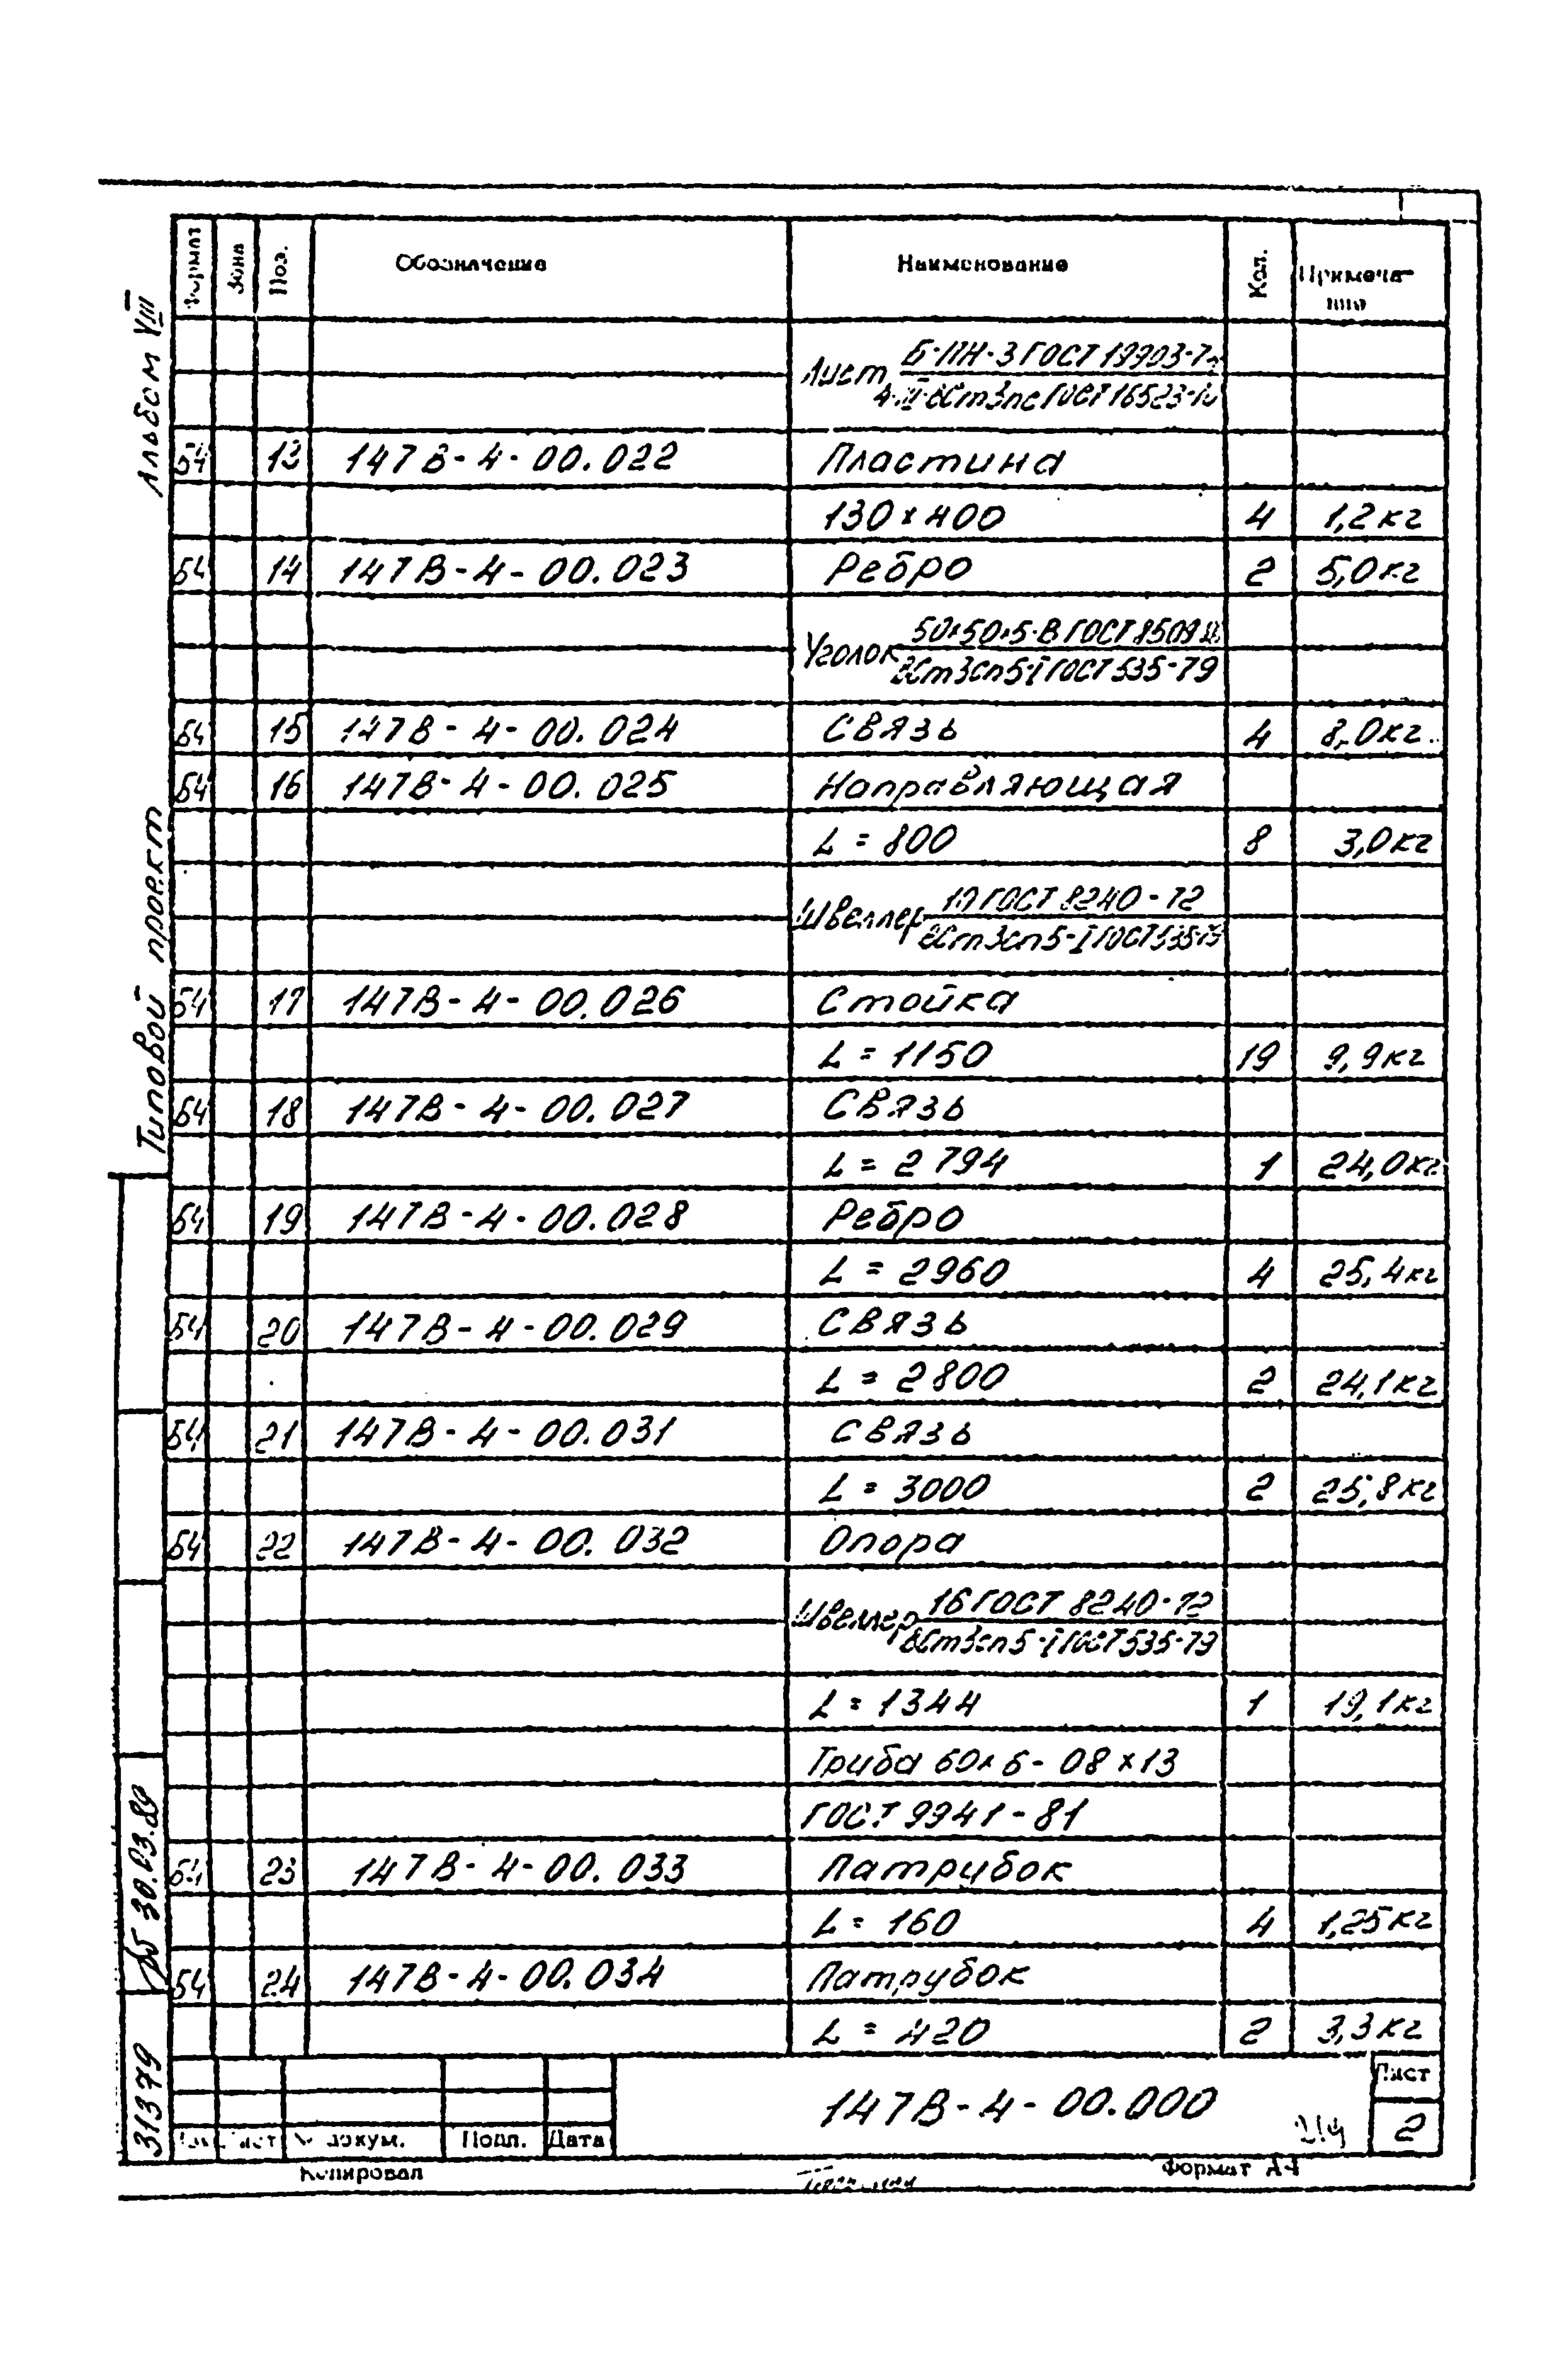 Альбом VIII
Типовой проект
Формат Зона Поз. Обозначение Наименование Кол. Примеча-
ние
Лист Б-ПН-3 ГОСТ 19903-74
4-III-ВСт3пс ГОСТ 16523-70
БЧ 13 147В-4-00.022 Пластина
130×400 4 1,2кг
БЧ 14 147В-4-00.023 Ребро 2 5,0кг
Уголок 50×50×5-В ГОСТ 8509
ВСт3сп5-I ГОСТ 535-79
БЧ 15 147В-4-00.024 Связь 4 8,0кг
БЧ 16 147В-4-00.025 Направляющая
L = 800 8 3,0кг
Швеллер 10 ГОСТ 8240-72
ВСт3сп5-I ГОСТ 535-79
БЧ 17 147В-4-00.026 Стойка
L = 1150 19 9,9кг
БЧ 18 147В-4-00.027 Связь
L = 2794 1 24,0кг
БЧ 19 147В-4-00.028 Ребро
L = 2960 4 25,4кг
БЧ 20 147В-4-00.029 Связь
L = 2800 2 24,1кг
БЧ 21 147В-4-00.031 Связь
L = 3000 2 25,8кг
БЧ 22 147В-4-00.032 Опора
Швеллер 16 ГОСТ 8240-72
ВСт3сп5-I ГОСТ 535-79
L = 1344 1 19,1кг
Труба 60×6-08×13
ГОСТ 9941-81
БЧ 23 147В-4-00.033 Патрубок
L = 160 4 1,25кг
БЧ 24 147В-4-00.034 Патрубок
L = 420 2 3,3кг
30.03.89
31379
Лист № докум. Подп. Дата
147В-4-00.000
Лист
2
Копировал
Формат А4